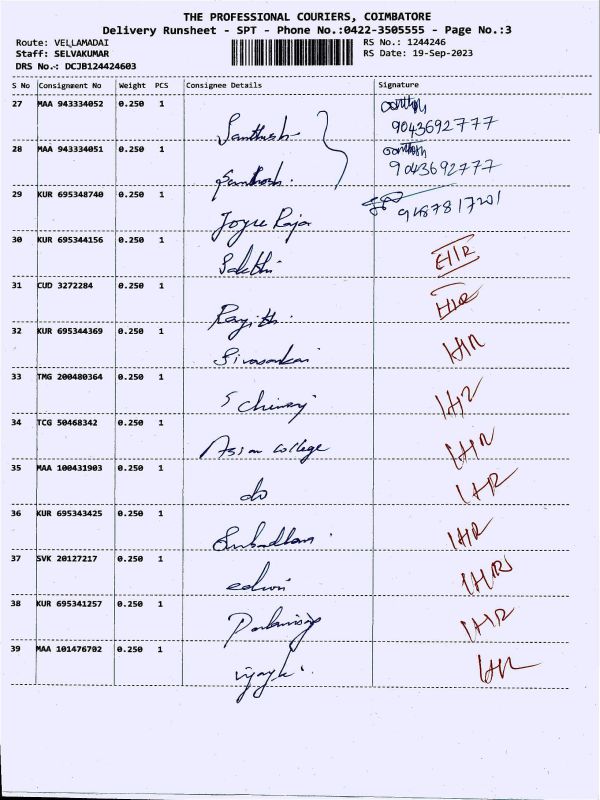 THE PROFESSIONAL COURIERS, COIMBATORE
Delivery Runsheet - SPT - Phone No.:0422-3505555 - Page No.:3
Route: VELLAMADAI RS No.: 1244246
Staff: SELVAKUMAR RS Date: 19-Sep-2023
DRS No.: DCJB124424603
S No Consignment No Weight PCS Consignee Details Signature
27 MAA 943334052 0.250 1 Santhosh
9043692777
28 MAA 943334051 0.250 1 Santhosh
9043692777
29 KUR 695348740 0.250 1 Joyce Raja 9487817201
30 KUR 695344156 0.250 1 Sakthi
31 CUD 3272284 0.250 1 Ranjith
32 KUR 695344369 0.250 1
33 TMG 200480364 0.250 1
34 TCG 50468342 0.250 1 Asian College
35 MAA 100431903 0.250 1 do
36 KUR 695343425 0.250 1
37 SVK 20127217 0.250 1 edwin
38 KUR 695341257 0.250 1
39 MAA 101476702 0.250 1